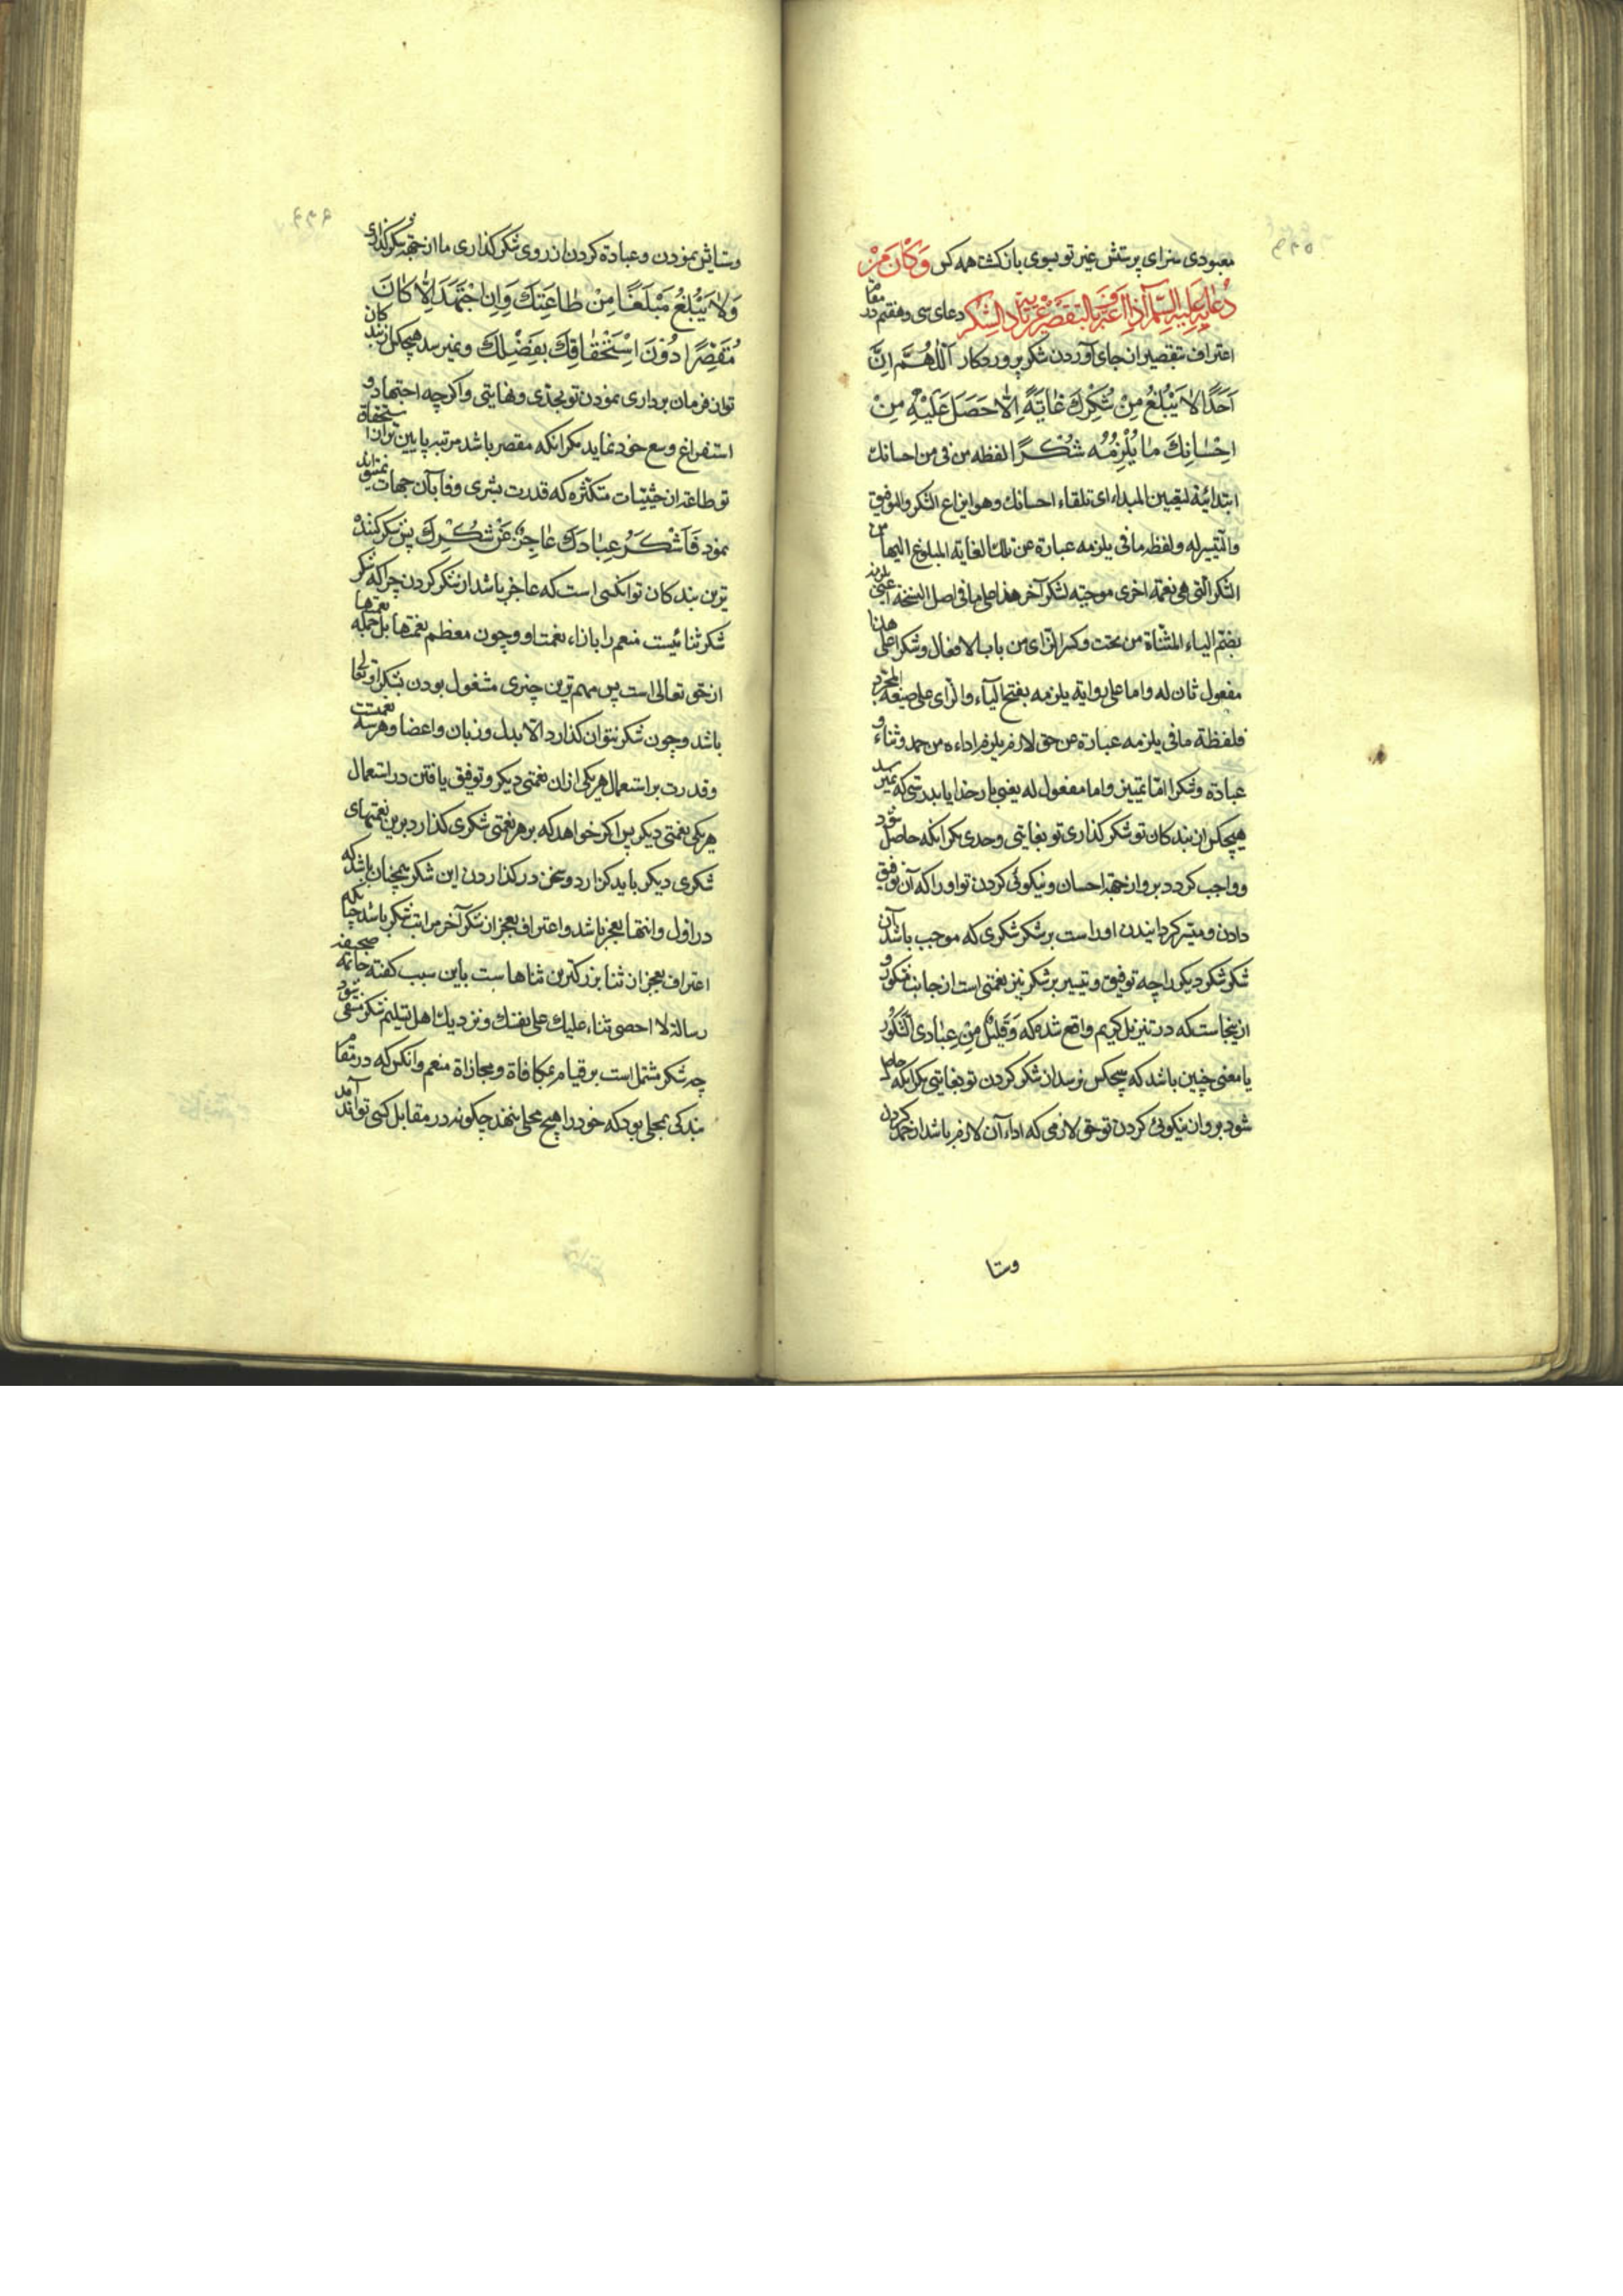 معبودی سزای پرستش غیر تو بسوی بازکشت همه کس وَكَانَ مِنْ
دُعَائِهِ عَلَيْهِ السَّلَامُ اِذَا اعْتَرَفَ بِالتَّقْصِيرِ عَنْ تَأْدِيَةِ الشُّكْرِ دعای سی و هفتم در مقام
اعتراف بتقصیر از جای آوردن شکر پروردکار اَللّٰهُمَّ اِنَّ
اَحَدًا لَا يَبْلُغُ مِنْ شُكْرِكَ غَايَةً اِلَّا حَصَلَ عَلَيْهِ مِنْ
اِحْسَانِكَ مَا يُلْزِمُهُ شُكْرًا لفظه من فی من احسانك
ابتدائیة لتعیین المبداء ای تلقاء احسانك وهو ایزاع الشکر والتوفیق
والتیسیر له ولفظه ما فی یلزمه عبارة عن تلك الغایة المبلوغ الیها من
الشکر الّتی هی نعمة اخری موجبة لشکر آخر هذا علی ما فی اصل النسخة اعنی یلزمه
بضم الیاء المثنّاة من تحت وکسر الزای من باب الافعال وشکرا علی هذا
مفعول ثان له واما علی روایة یلزمه بفتح الیآء والزای علی صیغة المجرد
فلفظة ما فی یلزمه عبارة عن حق لازم یلزم اداءه من حمد وثناء و
عبادة وشکرا امّا تمییز واما مفعول له یعنی بار خدایا بدرستی که نمیرسد
هیچکس از بندکان تو شکر کذاری تو بغایتی وحدی مکر آنکه حاصل شود
وواجب کردد بر و از جهة احسان و نیکوئی کردن تو او را که آن توفیق
دادن و میسّر کردانیدن او راست بر شکر شکری که موجب باشد آن
شکر شکر دیکر را چه توفیق و تیسیر بر شکر نیز نعمتی است از جانب مشکور و
ازینجاست که در تنزیل کریم واقع شده که وَقَلِيلٌ مِنْ عِبَادِيَ الشَّكُورُ
یا معنی چنین باشد که هیچکس نرسد از شکر کردن تو بغایتی مکر آنکه حاصل
شود بر و از نیکوئی کردن تو حق لازمی که اداء آن لازم باشد از حمد کردن
وستا
وستایش نمودن و عبادة کردن از روی شکر کذاری ما از جهة شکر کذاری
وَلَا يَبْلُغُ مَبْلَغًا مِنْ طَاعَتِكَ وَاِنِ اجْتَهَدَ اِلَّا كَانَ
مُقَصِّرًا دُونَ اسْتِحْقَاقِكَ بِفَضْلِكَ ونمیرسد هیچکس از بندکان
تو از فرمان برداری نمودن تو بحدی و نهایتی واکرچه اجتهاد و
استفراغ وسع خود نماید مکر آنکه مقصر باشد مرتبه پایین تر از استحقاق
تو طاعة از حیثیات متکثره که قدرت بشری وفا بآن جهات نتواند
نمود فَاَشْكَرُ عِبَادِكَ عَاجِزٌ عَنْ شُكْرِكَ پس شکر کننده
ترین بندکان تو آنکسی است که عاجز باشد از شکر کردن چرا که شکر
شکر ثنائیست منعم را بازاء نعمت او وچون معظم نعمتها بل جمله نعمتها
از حق تعالی است پس مهم ترین چیزی مشغول بودن بشکر او تعالی
باشد وچون شکر نتوان کذارد الا بدل و زبان و اعضا وهر سه نعمتست
وقدرت بر استعمال هر یکی از ان نعمتی دیکر و توفیق یافتن در استعمال
هر یکی نعمتی دیکر پس اکر خواهد که بر هر نعمتی شکری کذارد برین نعمتهای
شکری دیکر باید کزارد وسخن در کذاردن این شکر همچنان باشد که
در اول وانتها بعجز باشد واعتراف بعجز از شکر آخر مراتب شکر باشد چنانکه
اعتراف بعجز از ثنا بزرکترین ثناهاست باین سبب کفته خاتمه صحیفه
رسالة لا احصی ثناء علیك علی نفسك و نزدیك اهل تسلیم شکر منتفی شود
چه شکر مشتمل است بر قیام بمکافاة و مجازاة منعم وآنکس که در مقام
بندکی بمحلی بود که خود را هیچ محلی ننهد چکونه در مقابل کسی تواند آمد